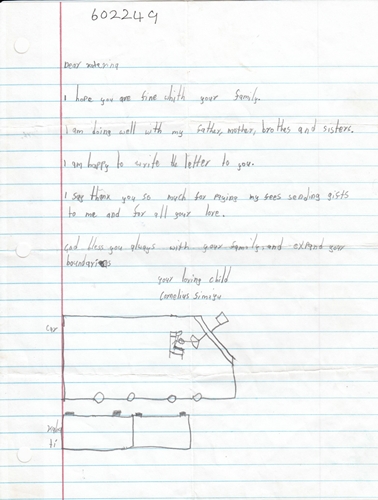 602249
Dear
I hope you are fine whith your family.
I am doing well with my father, mother, brothes and sisters.
I am happy to write the letter to you.
I say thank you so much for paying my fees sending gifts
to me and for all your love.
God bless you always with your family, and expand your
boundaries
your loving child
Cornelius Simiyu
car